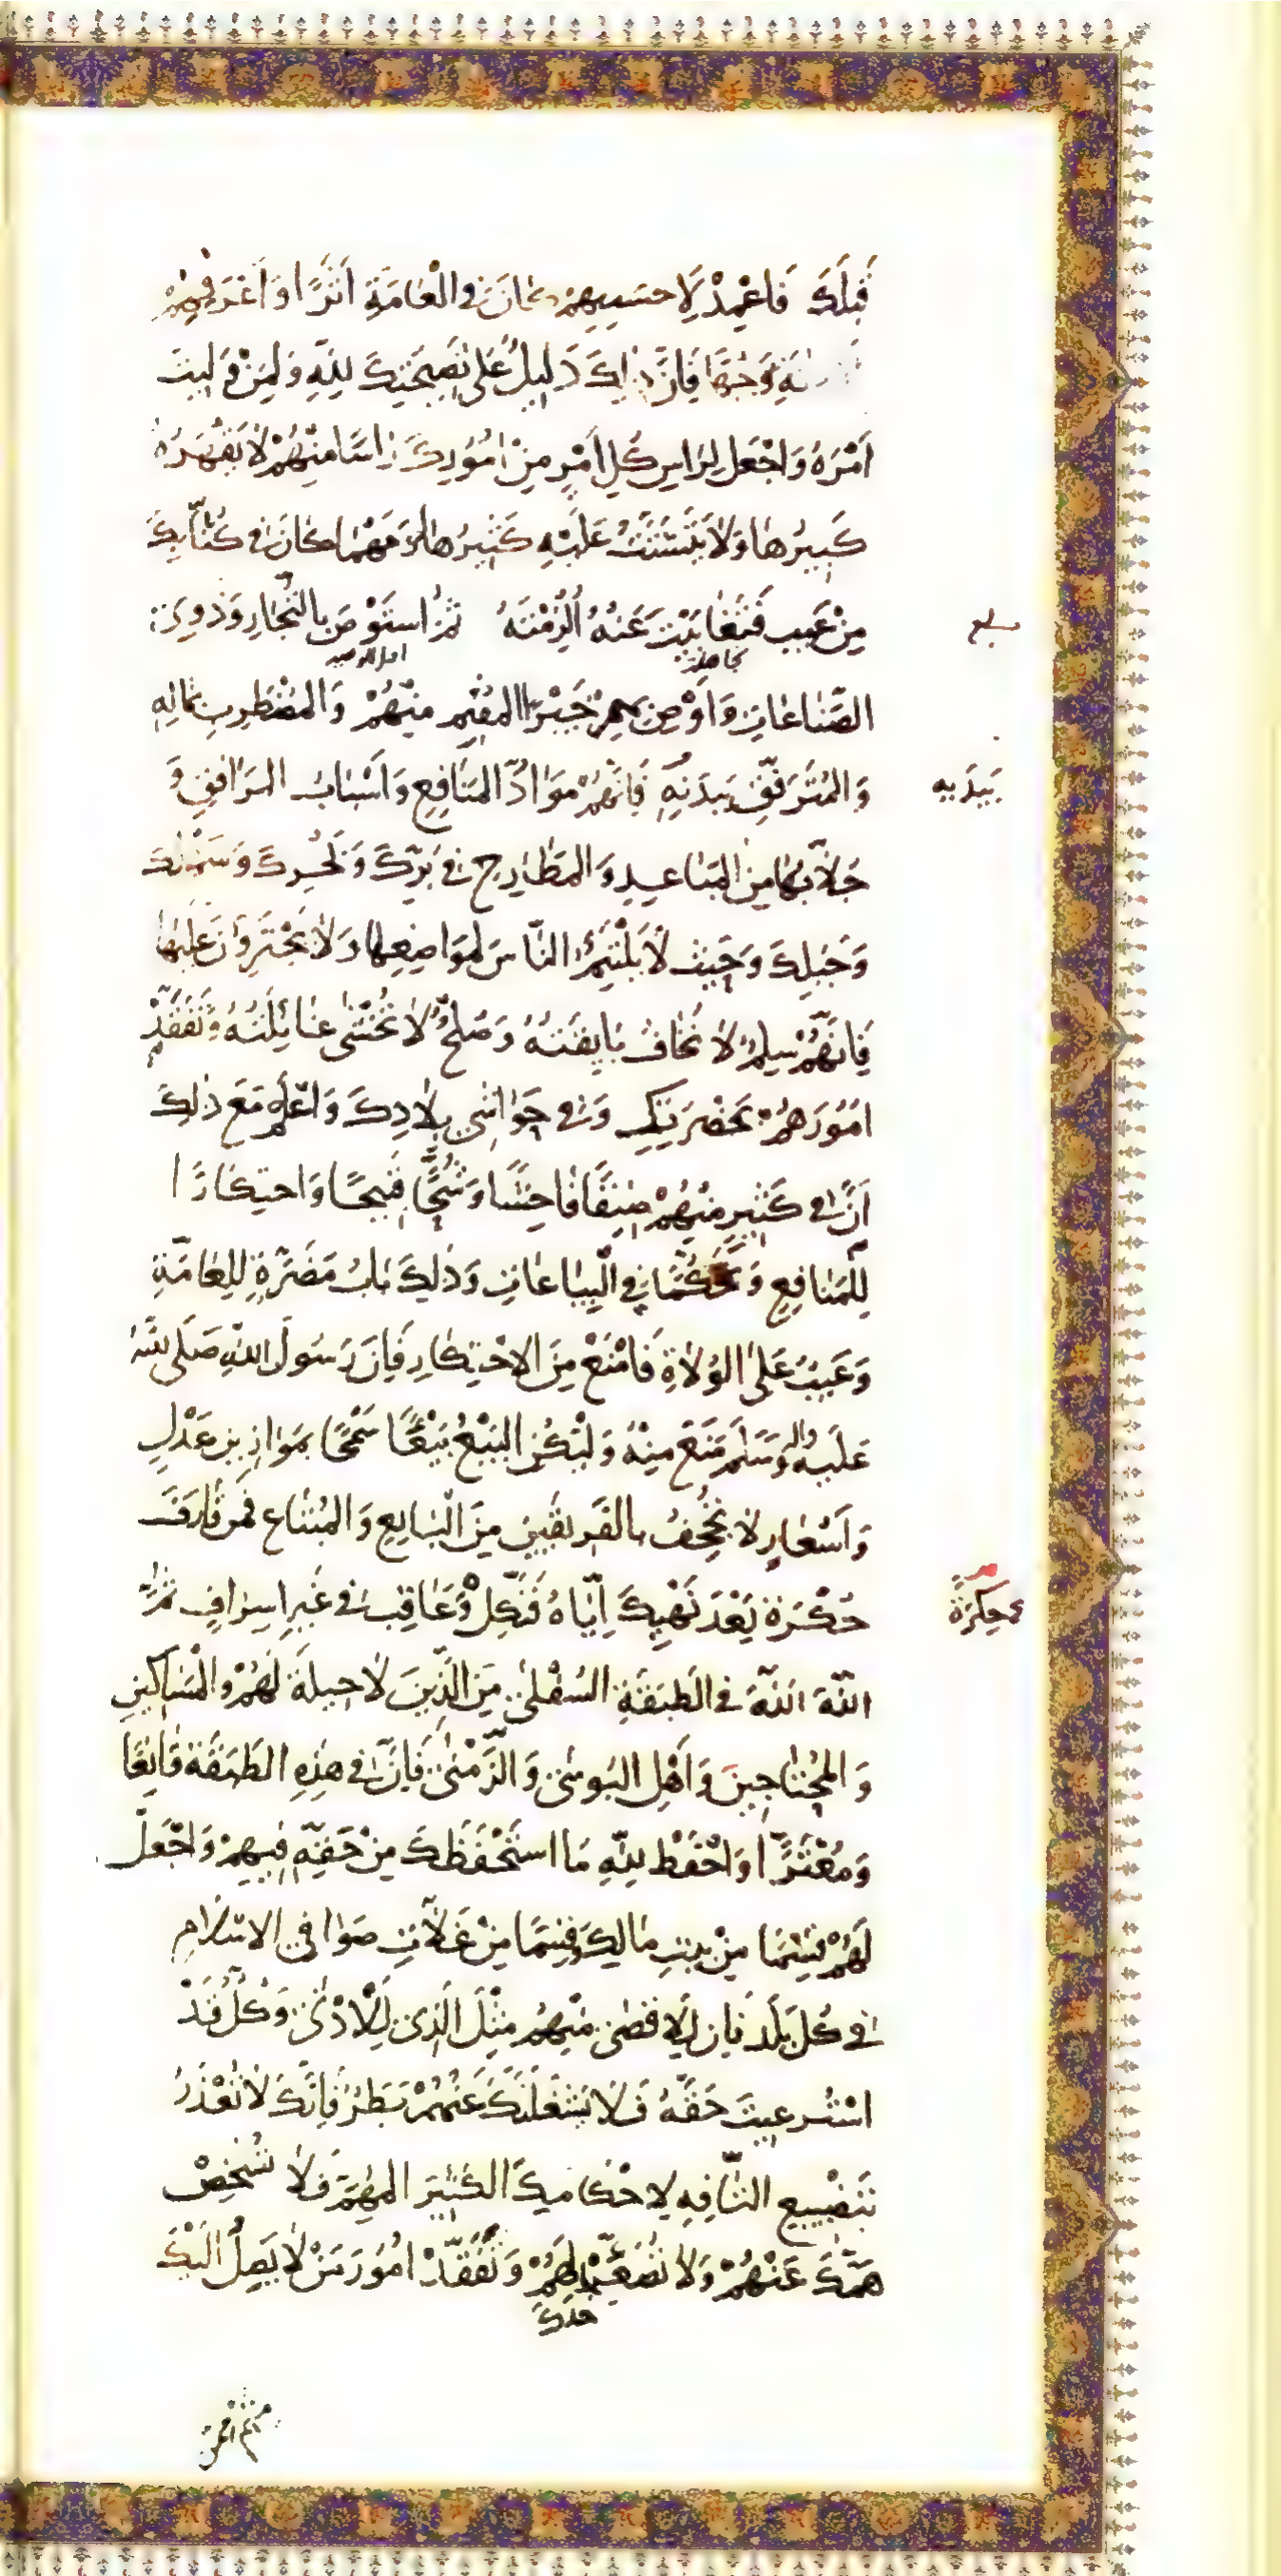 قَبْلَكَ فَاعْمِدْ لِأَحْسَنِهِمْ كَانَ فِي الْعَامَّةِ أَثَرًا وَأَعْرَفِهِمْ
وَجْهًا فَإِنَّ ذٰلِكَ دَلِيلٌ عَلَى نَصِيحَتِكَ لِلّٰهِ وَلِمَنْ وَلِيتَ
أَمْرَهُ وَاجْعَلْ لِرَأْسِ كُلِّ أَمْرٍ مِنْ أُمُورِكَ رَأْسًا مِنْهُمْ لَا يَقْهَرُهُ
كَبِيرُهَا وَلَا يَتَشَتَّتُ عَلَيْهِ كَثِيرُهَا وَمَهْمَا كَانَ فِي كُتَّابِكَ
مِنْ عَيْبٍ فَتَغَابَيْتَ عَنْهُ أُلْزِمْتَهُ ثُمَّ اسْتَوْصِ بِالتُّجَّارِ وَذَوِي
الصِّنَاعَاتِ وَأَوْصِ بِهِمْ خَيْرًا الْمُقِيمِ مِنْهُمْ وَالْمُضْطَرِبِ بِمَالِهِ
وَالْمُتَرَفِّقِ بِبَدَنِهِ فَإِنَّهُمْ مَوَادُّ الْمَنَافِعِ وَأَسْبَابُ الْمَرَافِقِ وَ
بِبَدَيْهِ
جُلَّابُهَا مِنَ الْمَبَاعِدِ وَالْمَطَارِحِ فِي بَرِّكَ وَبَحْرِكَ وَسَهْلِكَ
وَجَبَلِكَ وَحَيْثُ لَا يَلْتَئِمُ النَّاسُ لِمَوَاضِعِهَا وَلَا يَجْتَرِؤُنَ عَلَيْهَا
فَإِنَّهُمْ سِلْمٌ لَا تُخَافُ بَايِقَتُهُ وَصُلْحٌ لَا تُخْشَى غَائِلَتُهُ وَتَفَقَّدْ
أُمُورَهُمْ بِحَضْرَتِكَ وَفِي حَوَاشِي بِلَادِكَ وَاعْلَمْ مَعَ ذٰلِكَ
أَنَّ فِي كَثِيرٍ مِنْهُمْ ضِيقًا فَاحِشًا وَشُحًّا قَبِيحًا وَاحْتِكَارًا
لِلْمَنَافِعِ وَتَحَكُّمًا فِي الْبِيَاعَاتِ وَذٰلِكَ بَابُ مَضَرَّةٍ لِلْعَامَّةِ
وَعَيْبٌ عَلَى الْوُلَاةِ فَامْنَعْ مِنَ الْاِحْتِكَارِ فَإِنَّ رَسُولَ اللّٰهِ صَلَّى اللّٰهُ
عَلَيْهِ وَآلِهِ وَسَلَّمَ مَنَعَ مِنْهُ وَلْيَكُنِ الْبَيْعُ بَيْعًا سَمْحًا بِمَوَازِينِ عَدْلٍ
وَأَسْعَارٍ لَا تُجْحِفُ بِالْفَرِيقَيْنِ مِنَ الْبَايِعِ وَالْمُبْتَاعِ فَمَنْ قَارَفَ
حُكْرَةً بَعْدَ نَهْيِكَ إِيَّاهُ فَنَكِّلْ وَعَاقِبْ فِي غَيْرِ إِسْرَافٍ ثُمَّ
حِكْرَةً
اللّٰهَ اللّٰهَ فِي الطَّبَقَةِ السُّفْلَى مِنَ الَّذِينَ لَا حِيلَةَ لَهُمْ وَالْمَسَاكِينِ
وَالْمُحْتَاجِينَ وَأَهْلِ الْبُوسَى وَالزَّمْنَى فَإِنَّ فِي هٰذِهِ الطَّبَقَةِ قَانِعًا
وَمُعْتَرًّا وَاحْفَظْ لِلّٰهِ مَا اسْتَحْفَظَكَ مِنْ حَقِّهِ فِيهِمْ وَاجْعَلْ
لَهُمْ قِسْمًا مِنْ بَيْتِ مَالِكَ وَقِسْمًا مِنْ غَلَّاتِ صَوَافِي الْاِسْلَامِ
فِي كُلِّ بَلَدٍ فَإِنَّ لِلْأَقْصَى مِنْهُمْ مِثْلَ الَّذِي لِلْأَدْنَى وَكُلٌّ قَدْ
اسْتُرْعِيتَ حَقَّهُ فَلَا يَشْغَلَنَّكَ عَنْهُمْ بَطَرٌ فَإِنَّكَ لَا تُعْذَرُ
بِتَضْيِيعِ التَّافِهِ لِإِحْكَامِكَ الْكَثِيرَ الْمُهِمَّ فَلَا تُشْخِصْ
هَمَّكَ عَنْهُمْ وَلَا تُصَعِّرْ لَهُمْ وَتَفَقَّدْ أُمُورَ مَنْ لَا يَصِلُ إِلَيْكَ
خَدَّكَ